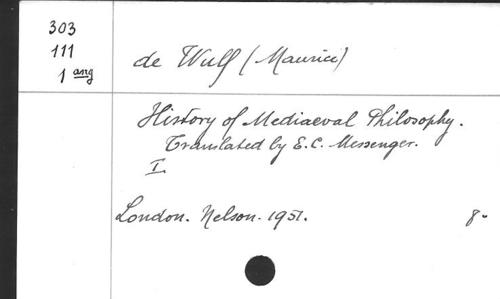 303
111
1 ang
de Wulf (Maurice)
History of Mediaeval Philosophy.
Translated by E.C. Messenger.
I.
London. Nelson. 1951. 8-